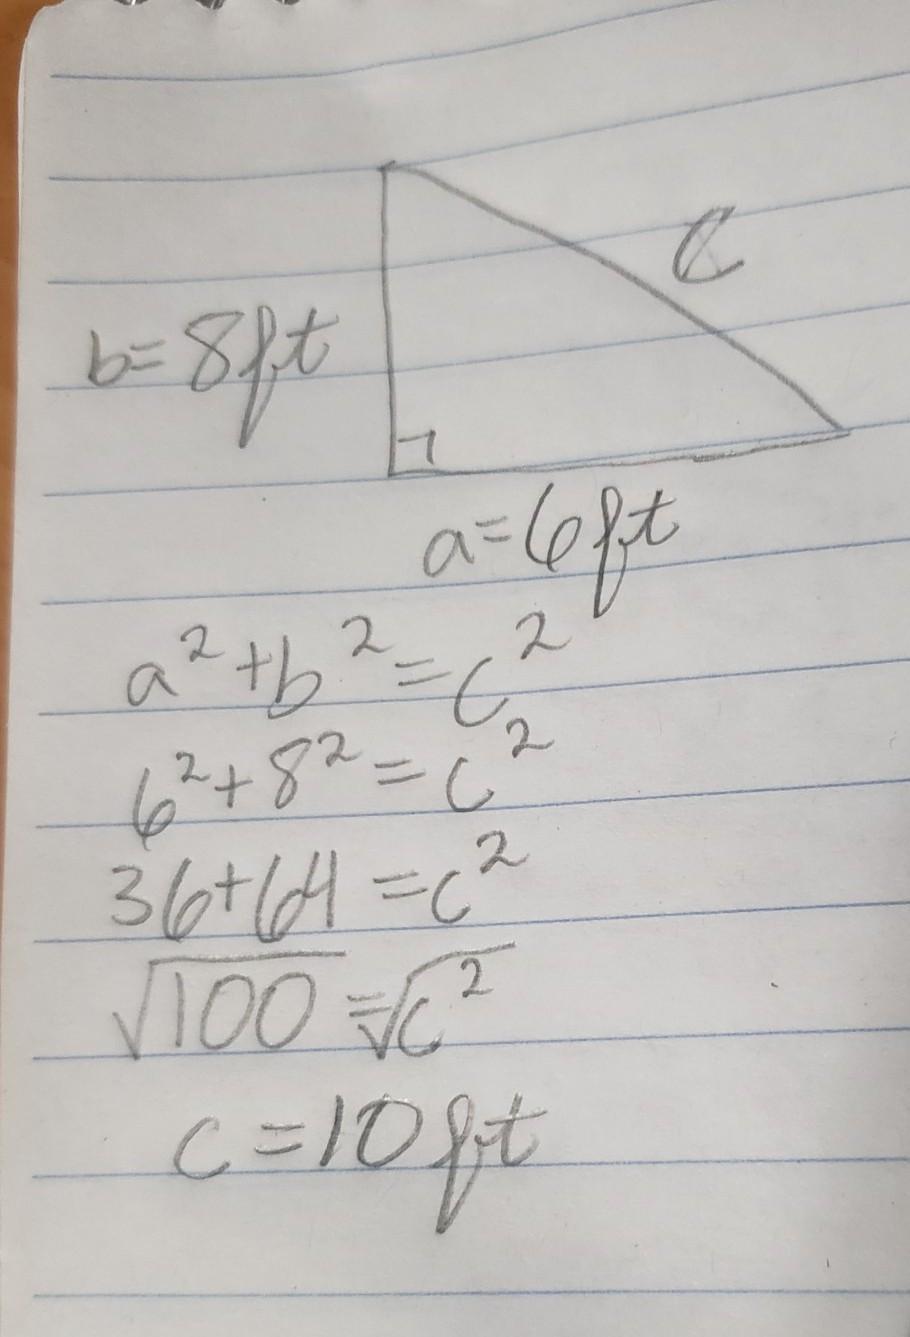 C
b=8ft
a=6ft
a²+b²=c²
6²+8²=c²
36+64=c²
√100=√c²
c=10ft